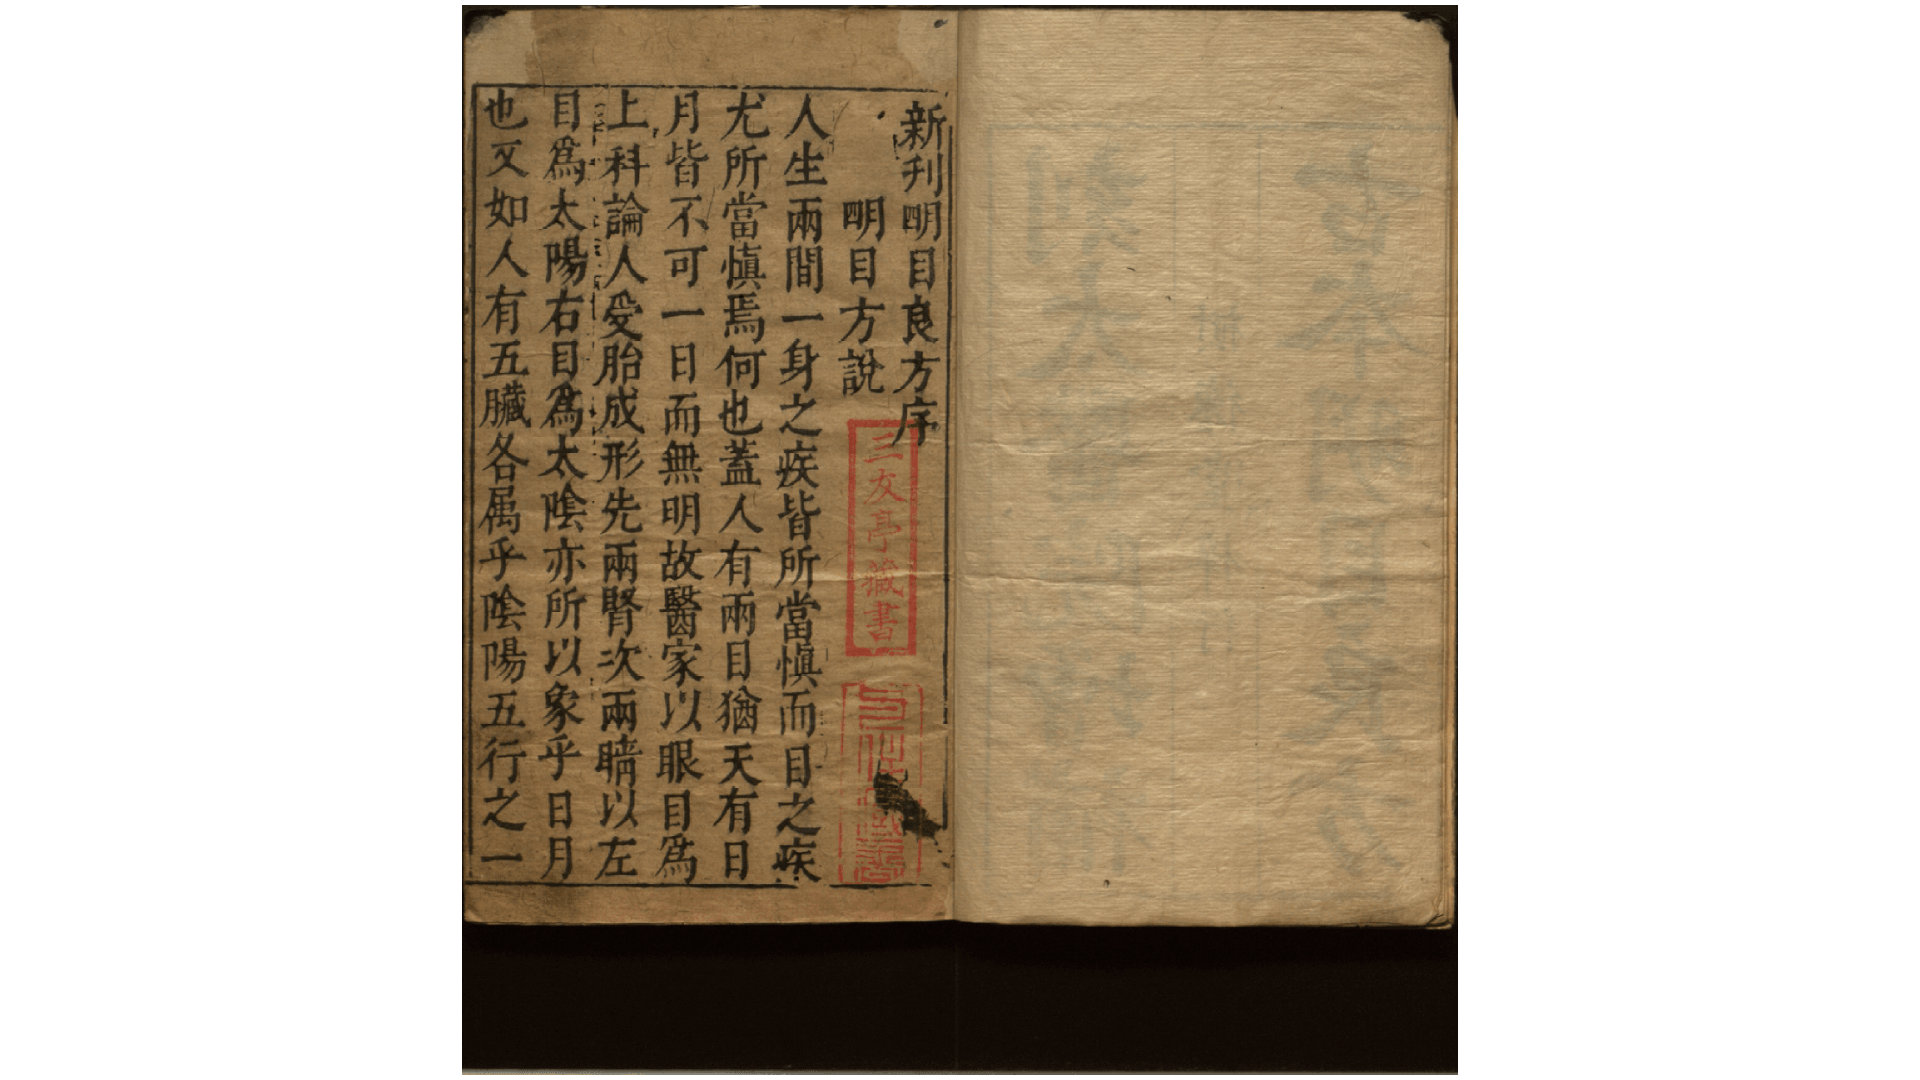 新刊明目良方序
明目方說
三友亭藏書
人生兩間一身之疾皆所當愼而目之疾
尤所當愼焉何也蓋人有兩目猶天有日
月皆不可一日而無明故醫家以眼目爲
上科論人受胎成形先兩腎次兩睛以左
目爲太陽右目爲太陰亦所以象乎日月
也又如人有五臟各属乎陰陽五行之一